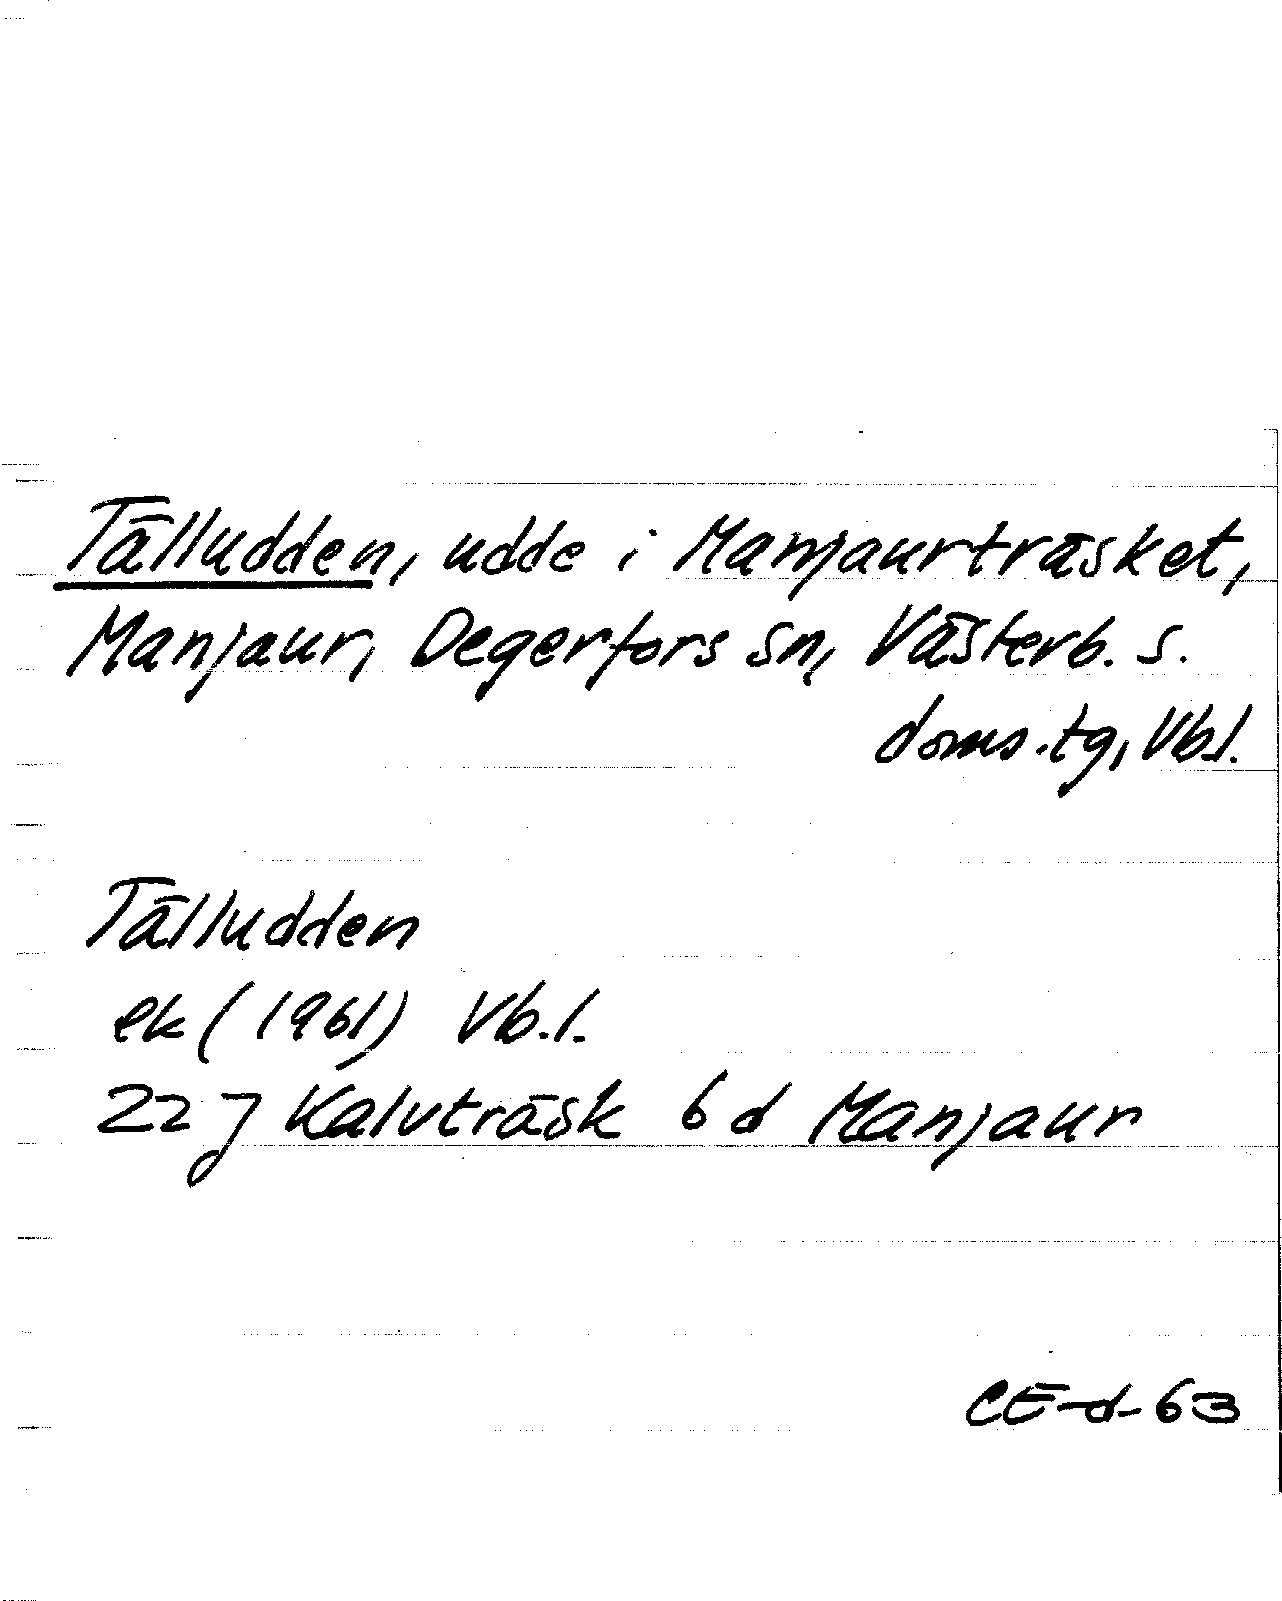 Tälludden, udde i Manjaurträsket,
Manjaur, Degerfors sn, Västerb. s.
doms.tg, Vbl.
Tälludden
ek (1961) Vb.l.
22 J Kalvträsk 6 d Manjaur
CE-d-63